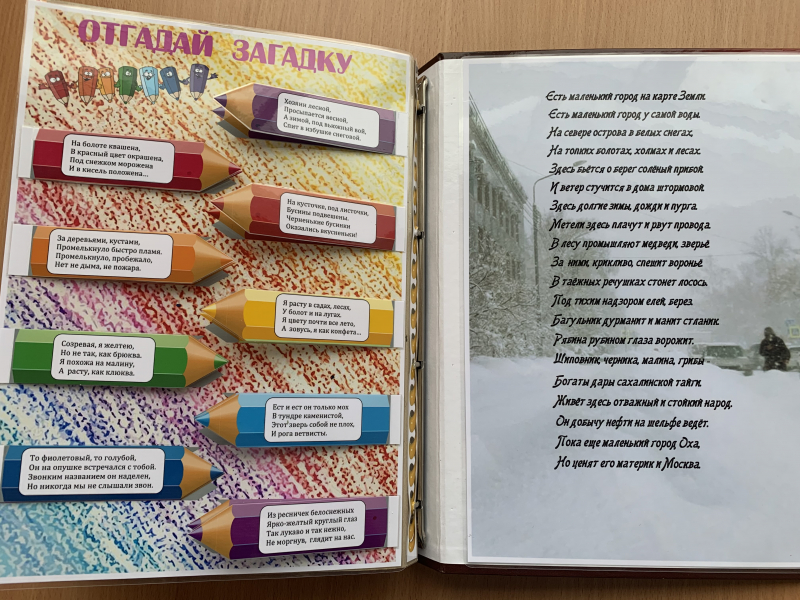 ОТГАДАЙ ЗАГАДКУ
Хозяин лесной,
Просыпается весной,
А зимой, под вьюжный вой,
Спит в избушке снеговой.
На болоте квашена,
В красный цвет окрашена,
Под снежком морожена
И в кисель положена...
На кусточке, под листочки,
Бусины подвешены.
Черненькие бусинки
Оказались вкусненьки!
За деревьями, кустами,
Промелькнуло быстро пламя.
Промелькнуло, пробежало,
Нет не дыма, не пожара.
Я расту в садах, лесах,
У болот и на лугах.
Я цвету почти все лето,
А зовусь, я как конфета...
Созревая, я желтею,
Но не так, как брюква.
Я похожа на малину,
А расту, как клюква.
Ест и ест он только мох
В тундре каменистой,
Этот зверь собой не плох,
И рога ветвисты.
То фиолетовый, то голубой,
Он на опушке встречался с тобой.
Звонким названием он наделен,
Но никогда мы не слышали звон.
Из ресничек белоснежных
Ярко-желтый круглый глаз
Так лукаво и так нежно,
Не моргнув, глядит на нас.
Есть маленький город на карте Земли.
Есть маленький город у самой воды.
На севере острова в белых снегах,
На топких болотах, холмах и лесах.
Здесь бьётся о берег солёный прибой.
И ветер стучится в дома штормовой.
Здесь долгие зимы, дожди и пурга.
Метели здесь плачут и рвут провода.
В лесу промышляют медведи, зверьё.
За ними, крикливо, спешит вороньё.
В таёжных речушках стонет лосось.
Под тихим надзором елей, берез.
Багульник дурманит и манит стланик.
Рябина рубином глаза ворожит.
Шиповник, черника, малина, грибы -
Богаты дары сахалинской тайги.
Живёт здесь отважный и стойкий народ.
Он добычу нефти на шельфе ведёт.
Пока еще маленький город Оха,
Но ценят его материк и Москва.